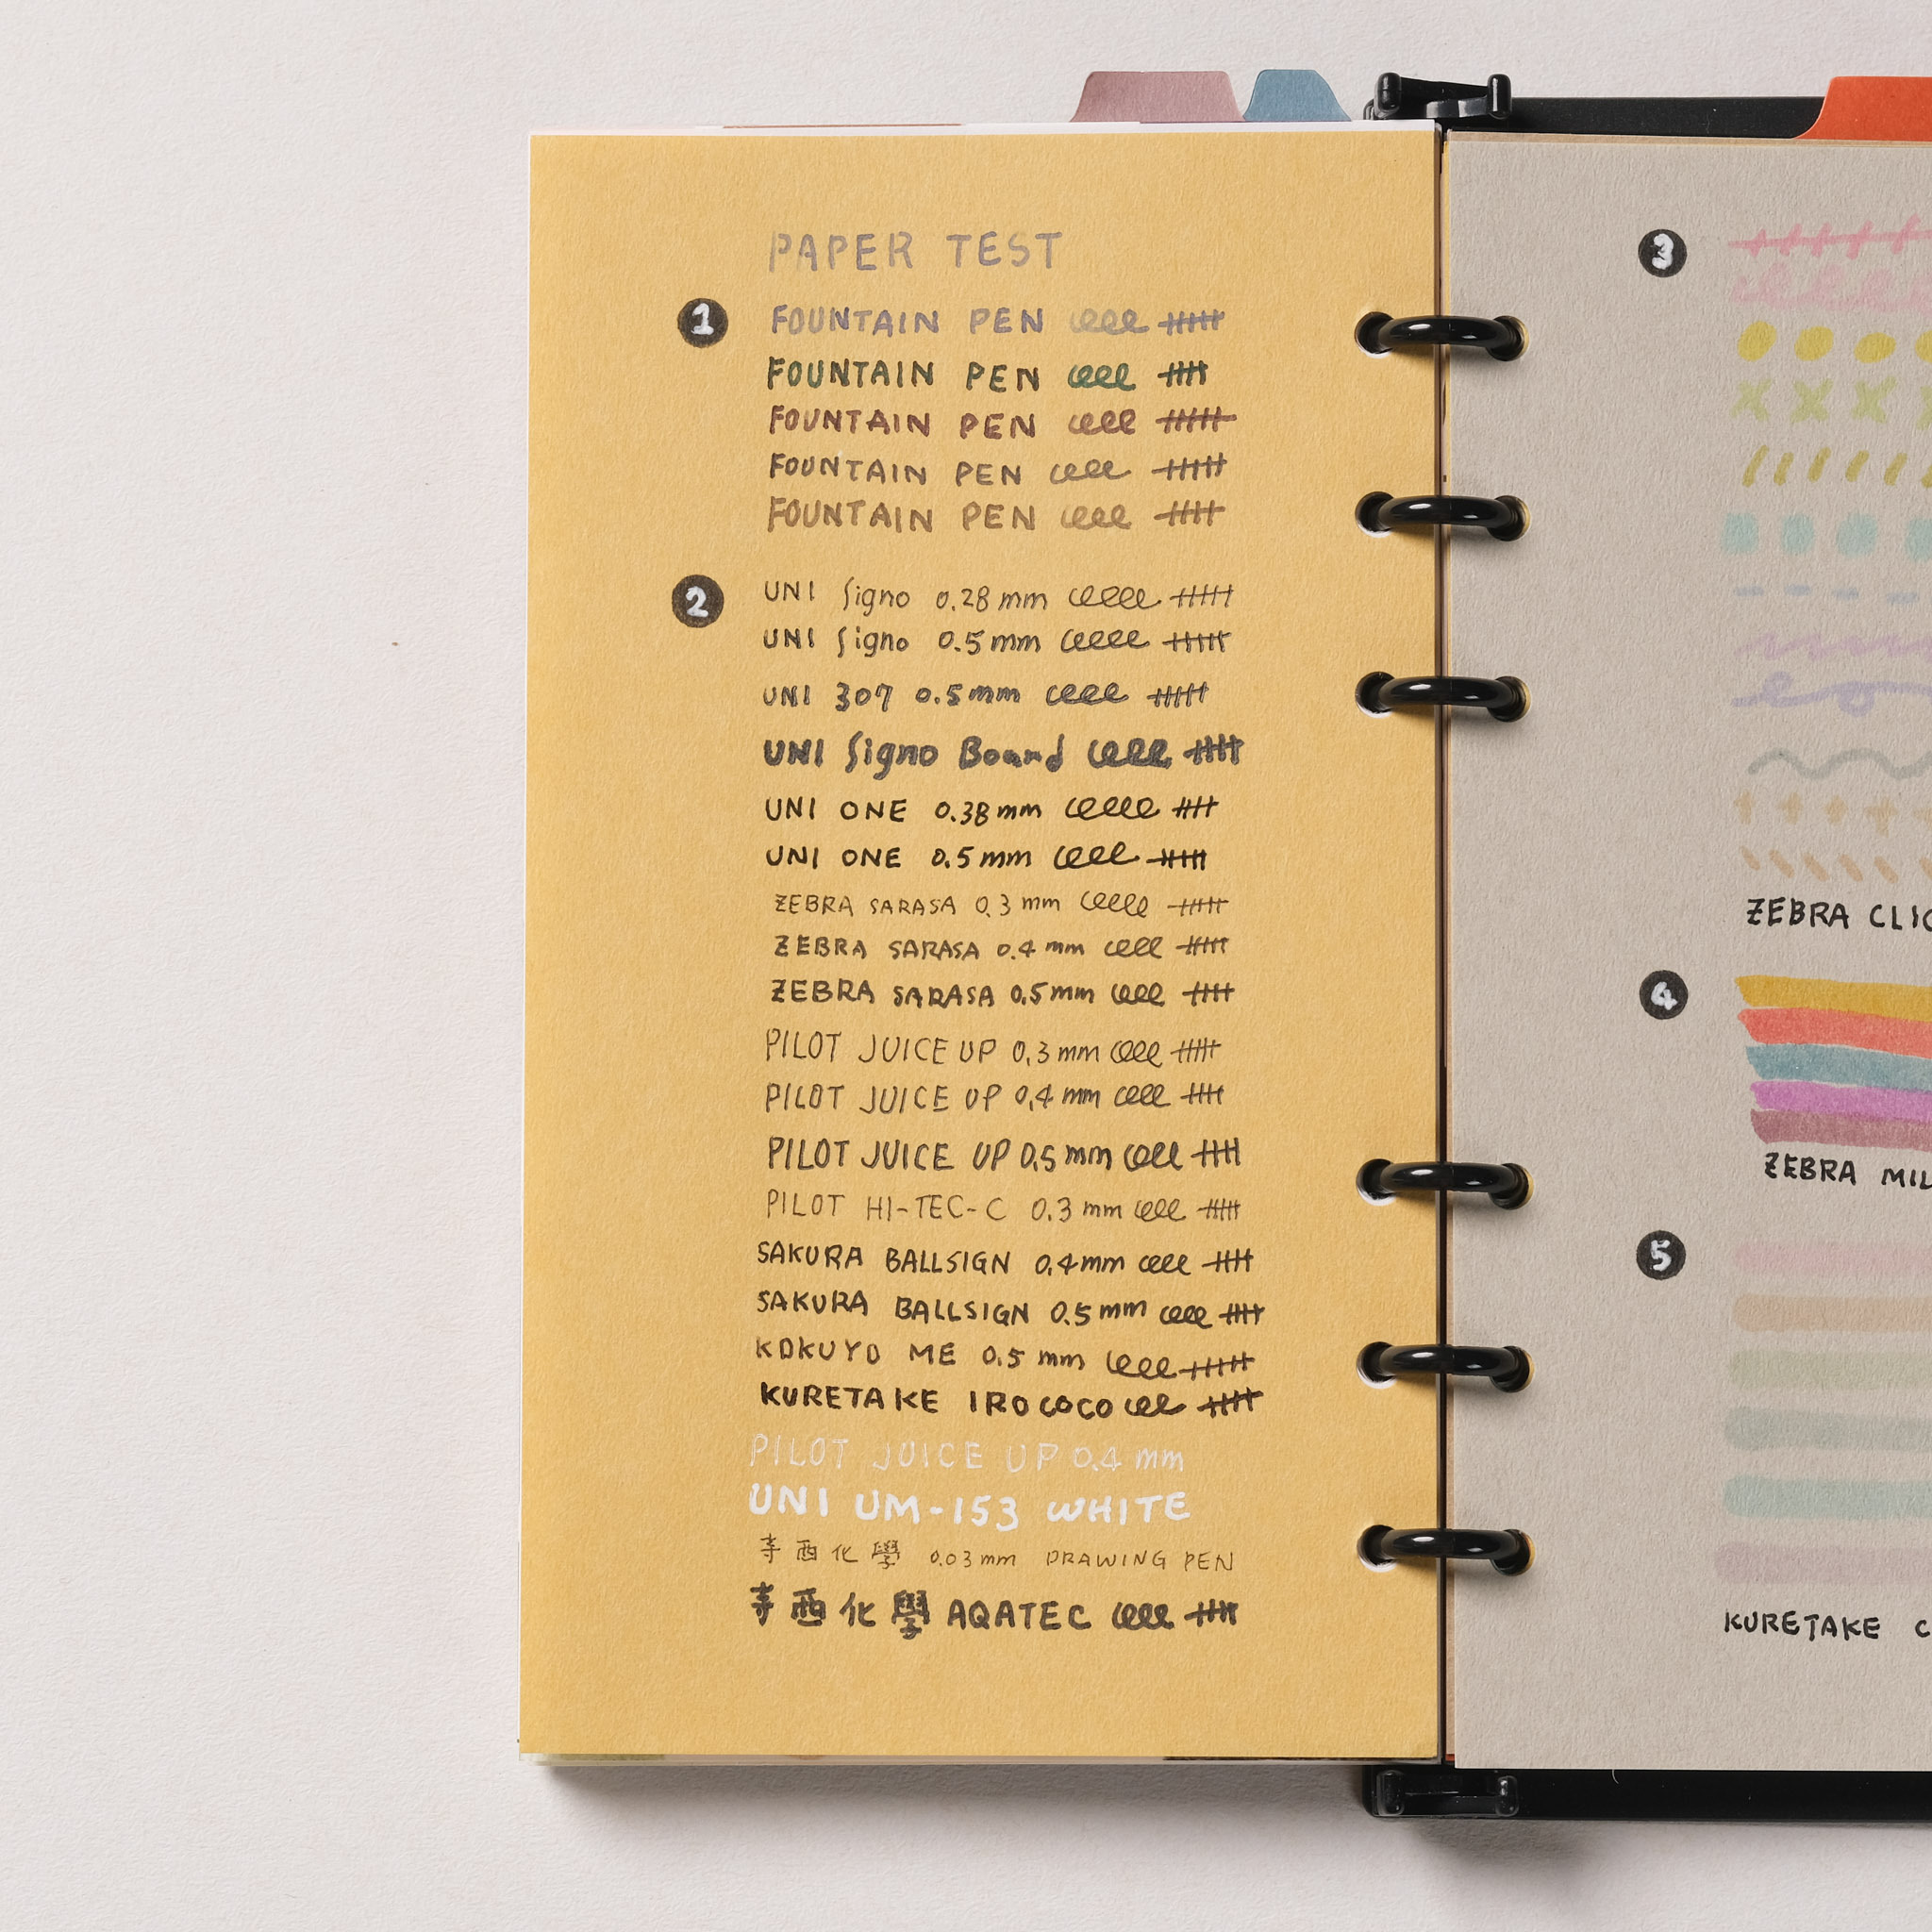 PAPER TEST
1 FOUNTAIN PEN
FOUNTAIN PEN
FOUNTAIN PEN
FOUNTAIN PEN
FOUNTAIN PEN
2 UNI Signo 0.28 mm
UNI Signo 0.5 mm
UNI 307 0.5 mm
UNI Signo Board
UNI ONE 0.38 mm
UNI ONE 0.5 mm
ZEBRA SARASA 0.3 mm
ZEBRA SARASA 0.4 mm
ZEBRA SARASA 0.5 mm
PILOT JUICE UP 0.3 mm
PILOT JUICE UP 0.4 mm
PILOT JUICE UP 0.5 mm
PILOT HI-TEC-C 0.3 mm
SAKURA BALLSIGN 0.4 mm
SAKURA BALLSIGN 0.5 mm
KOKUYO ME 0.5 mm
KURETAKE IROCOCO
PILOT JUICE UP 0.4 mm
UNI UM-153 WHITE
化學 0.03 mm DRAWING PEN
化學 AQATEC
3
ZEBRA CLIC
4
ZEBRA MIL
5
KURETAKE C